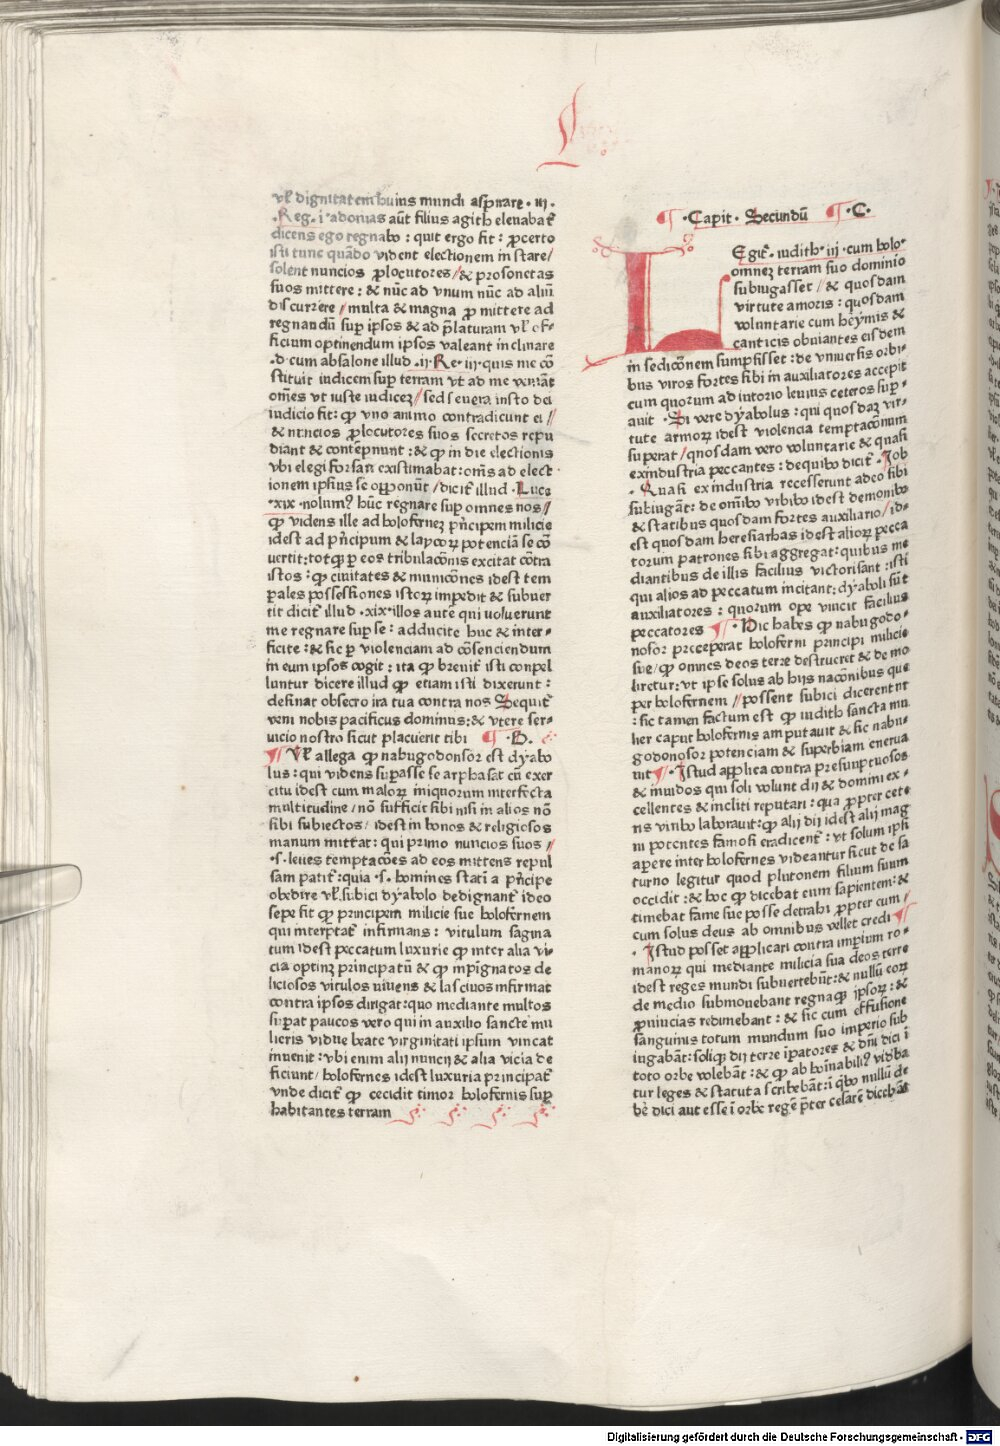 L
vl̄ dignitatem huius mundi aspirare · iij ·
· Reg · i · adonias aūt filius agith eleuabat̄
dicens ego regnabo : quit ergo fit : ꝓcerto
isti tunc quādo vident electionem instare /
solent nuncios ꝓlocutores / & prosonetas
suos mittere : & nūc ad vnum nūc ad aliū
discurrere // multa & magna ꝓmittere ad
regnandū suꝑ ipsos & ad p̄laturam vl̄ of-
ficium optinendum ipsos valeant inclinare
· d · cum absalone illud · ij · Re · iij · quis me cō
stituit iudicem suꝑ terram vt ad me veniāt
om̄es vt iuste iudicez // sed seuera iusto dei
iudicio fit : qꝫ vno animo contradicunt ei //
& nuncios ꝓlocutores suos secretos repu
diant & contepnunt : & qꝫ in die electionis
vbi elegi forsan existimabat : om̄s ad elect
ionem ipsius se opponūt / dicit̄ illud · Luce
· xix · nolumꝰ hūc regnare suꝑ omnes nos //
qꝫ videns ille ad holofernez pn̄cipem milicie
idest ad pn̄cipum & laycoꝝ potenciā se cō
uertit : totqꝫ ꝑ eos tribulacōnis excitat cōtra
istos : qꝫ ciuitates & municōnes idest tem
ꝑales possessiones istoꝝ impedit & subuer
tit dicit̄ illud · xix · illos autē qui uoluerunt
me regnare suꝑ se : adducite huc & inter-
ficite : & sic ꝑ violenciam ad cōsenciendum
in eum ipsos cogit : ita qꝫ breuit̄ isti conpel
luntur dicere illud qꝫ etiam isti dixerunt :
desinat obsecro ira tua contra nos Sequit̄
veni nobis pacificus dominus : & vtere ser-
uicio nostro sicut placuerit tibi ¶ · B ·
¶ Vl̄ allega qꝫ nabugodonsor est dyabo
lus : qui videns suꝑasse se arphasat cū exer
citu idest cum maloꝝ iniquorum interfecta
multitudine / nō sufficit sibi nisi in alios nō
sibi subiectos / idest in bonos & religiosos
manum mittat : qui primo nuncios suos //
· s · leues temptacōes ad eos mittens repul
sam patit̄ : quia · s · homines statī a pn̄cipe
obedire vl̄ subici dyabolo dedignant̄ ideo
sepe fit qꝫ principem milicie sue holofernem
qui interp̄tat̄ infirmans : vitulum sagina
tum idest peccatum luxurie qꝫ inter alia vi-
cia optinz principatū & qꝫ inpīgnatos de
liciosos vitulos niuens & lasciuos infirmat
contra ipsos dirigat : quo mediante multos
suꝑat paucos vero qui in auxilio sancte mu
lieris vidue beate virginitati ipsum vincat
inuenit : vbi enim alij nuncij & alia vicia de
ficiunt / holofernes idest luxuria principat̄
vnde dicit̄ qꝫ cecidit timor holofernis suꝑ
habitantes terram
¶ · Capit · Secundū ¶ · C ·
LEgit̄ · iudith · iij · cum holo-
omnez terram suo dominio
subiugasset / & quosdam
virtute amoris : quosdam
voluntarie cum hȳmis &
canticis obuiantes eisdem
in sedicōnem sumpsisset : de vniuersis orbi-
bus viros fortes sibi in auxiliatores accepit
cum quorum adiutorio leuius ceteros suꝑ-
auit · Si vere dyabolus : qui quosdaꝫ vir-
tute armoꝝ idest violencia temptacōnum
suꝑerat / quosdam vero voluntarie & quasi
exindustria peccantes : dequibꝰ dicit̄ · Job
· Quasi ex industria recesserunt adeo sibi
subiugāt : de om̄ibꝰ vibibꝰ idest demonibꝰ
& statibus quosdam fortes auxiliario / id-
est quosdam heresiarhas idest alioꝝ pecca
torum patrones sibi aggregat : quibus me
diantibus de illis facilius victorisant : isti
qui alios ad peccatum incitant : dyaboli sūt
auxiliatores : quorum ope vincit facilius
peccatores ¶ · Hic habes qꝫ nabugodo-
nosor preceperat holoferni principi milicie
sue / qꝫ omnes deos terre destrueret & de mo
liretur : vt ipse solus ab hijs nacōnibus que
per holofernem // possent subici diceretnr
: sic tamen factum est qꝫ iudith sancta mu
lier caput holofernis amputauit & sic nabu-
godonosor potenciam & superbiam enerua
uit ¶ · Istud applica contra presuptuosos
& inuidos qui soli volunt dij & domini ex-
cellentes & incliti reputari : qua ꝓpter cete
ris viribꝰ laborauit : qꝫ alij dij idest alij mag
ni potentes famosi eradicent̄ : vt solum ipsi
aꝑere inter holofernes videantur sicut de sa
turno legitur quod plutonem filium suum
occidit : & hoc qꝫ dicebat eum sapientem : &
timebat fame sue posse detrahi ꝓpter cum /
cum solus deus ab omnibus vellet credi ¶
· Istud posset applicari contra imꝑium ro-
manoꝝ qui mediante milicia sua deos terre
idest reges mundi subuertebūt : & nullū eoꝝ
de medio submouebant regnaqꝫ ipsoꝝ : &
ꝓuincias redimebant : & sic cum effusione
sanguinis totum mundum suo imperio sub
iugabāt : soliqꝫ dij terre īꝑatores & dn̄i dici ī
toto orbe volebāt : & qꝫ ab hoīnabiliꝰ vidba
tur leges & statuta scribebāt : ī qibꝰ nullū de
bē dici aut esse ī orbe regē p̄ter celarē dicebāt
Digitalisierung gefördert durch die Deutsche Forschungsgemeinschaft - DFG